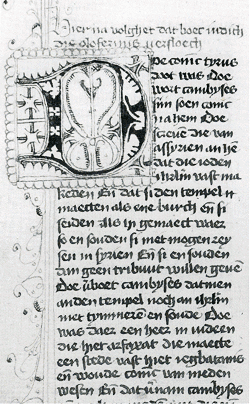 Hier na volghet dat boec iudich
die olofernus versloech
Doe conic tyrus
doot was Doe
wort cambyses
sijn soen conic
na hem Doe
screue die van
assyrien an he
dat die ioden
ihrlm vast ma
keden En dat si den tempel
maecten als ene burch en si
seiden als si gemaect waer
so en souden si met mogen zey
sen in syrien En si en souden
dan geen tribuut willen geuen
Doe vboet cambyses datmen
an den tempel noch an ihrlm
niet tymmere en soude Doe
was daer een heer in iudeen
die hiet arfaxat die maecte
een stede vast hiet egbatanis
en woude conic van meden
wesen En dat vnam cambyses